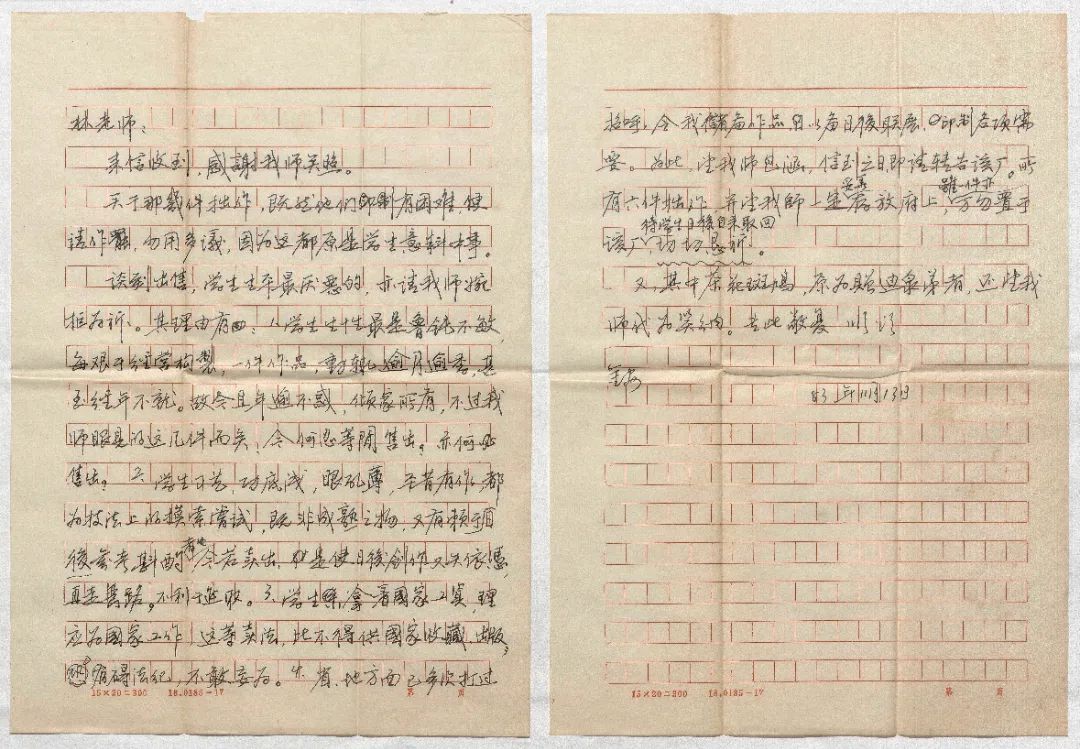 林老师：
来信收到，感謝我师关照。
关于那幾件拙作，既然他们印制有困难，便
请作罷，勿用多議，因为这都原是学生意料中事。
谈到出售，学生生平最厌恶的，亦请我师婉
拒为祈。其理由有四：1、学生生性最是魯钝不敏，
每艰于经营构製，一件作品，動輒逾月逾季，甚
至经年不就。故今且年逾不惑，傾家所有，不过我
师眼見的这几件而矣，今何忍等閒售出？亦何必
售出？二、学生习艺，功底浅，眼孔薄，至昔有作，都
为技法上的摸索嘗试，既非成熟之物，又有賴于日
後参考斟酌，今若卖出，則是使日後创作又失依憑
不利于進取。3、学生既拿着國家工資，理
应为國家工作，这等卖法，比不得供國家收藏、出版，
有碍法紀，不敢妄为。4、省、地方面已多次打过
15×20=300 18.0185-17 第 页
招呼，令我儲備作品以备日後联展、印制各项需
要。为此，望我师包涵，信到之日即请转告该厂。所
有六件拙作，并望我师一是妥善存放府上，雖一件亦万勿置于
该厂，待学生日後自来取回，切切恳祈。
又，其中茶花斑鳩，原为贈迪泉弟者，还望我
师代为笑纳。专此敬复 順頌
年 月13日
15×20=300 18.0185-17 第 页